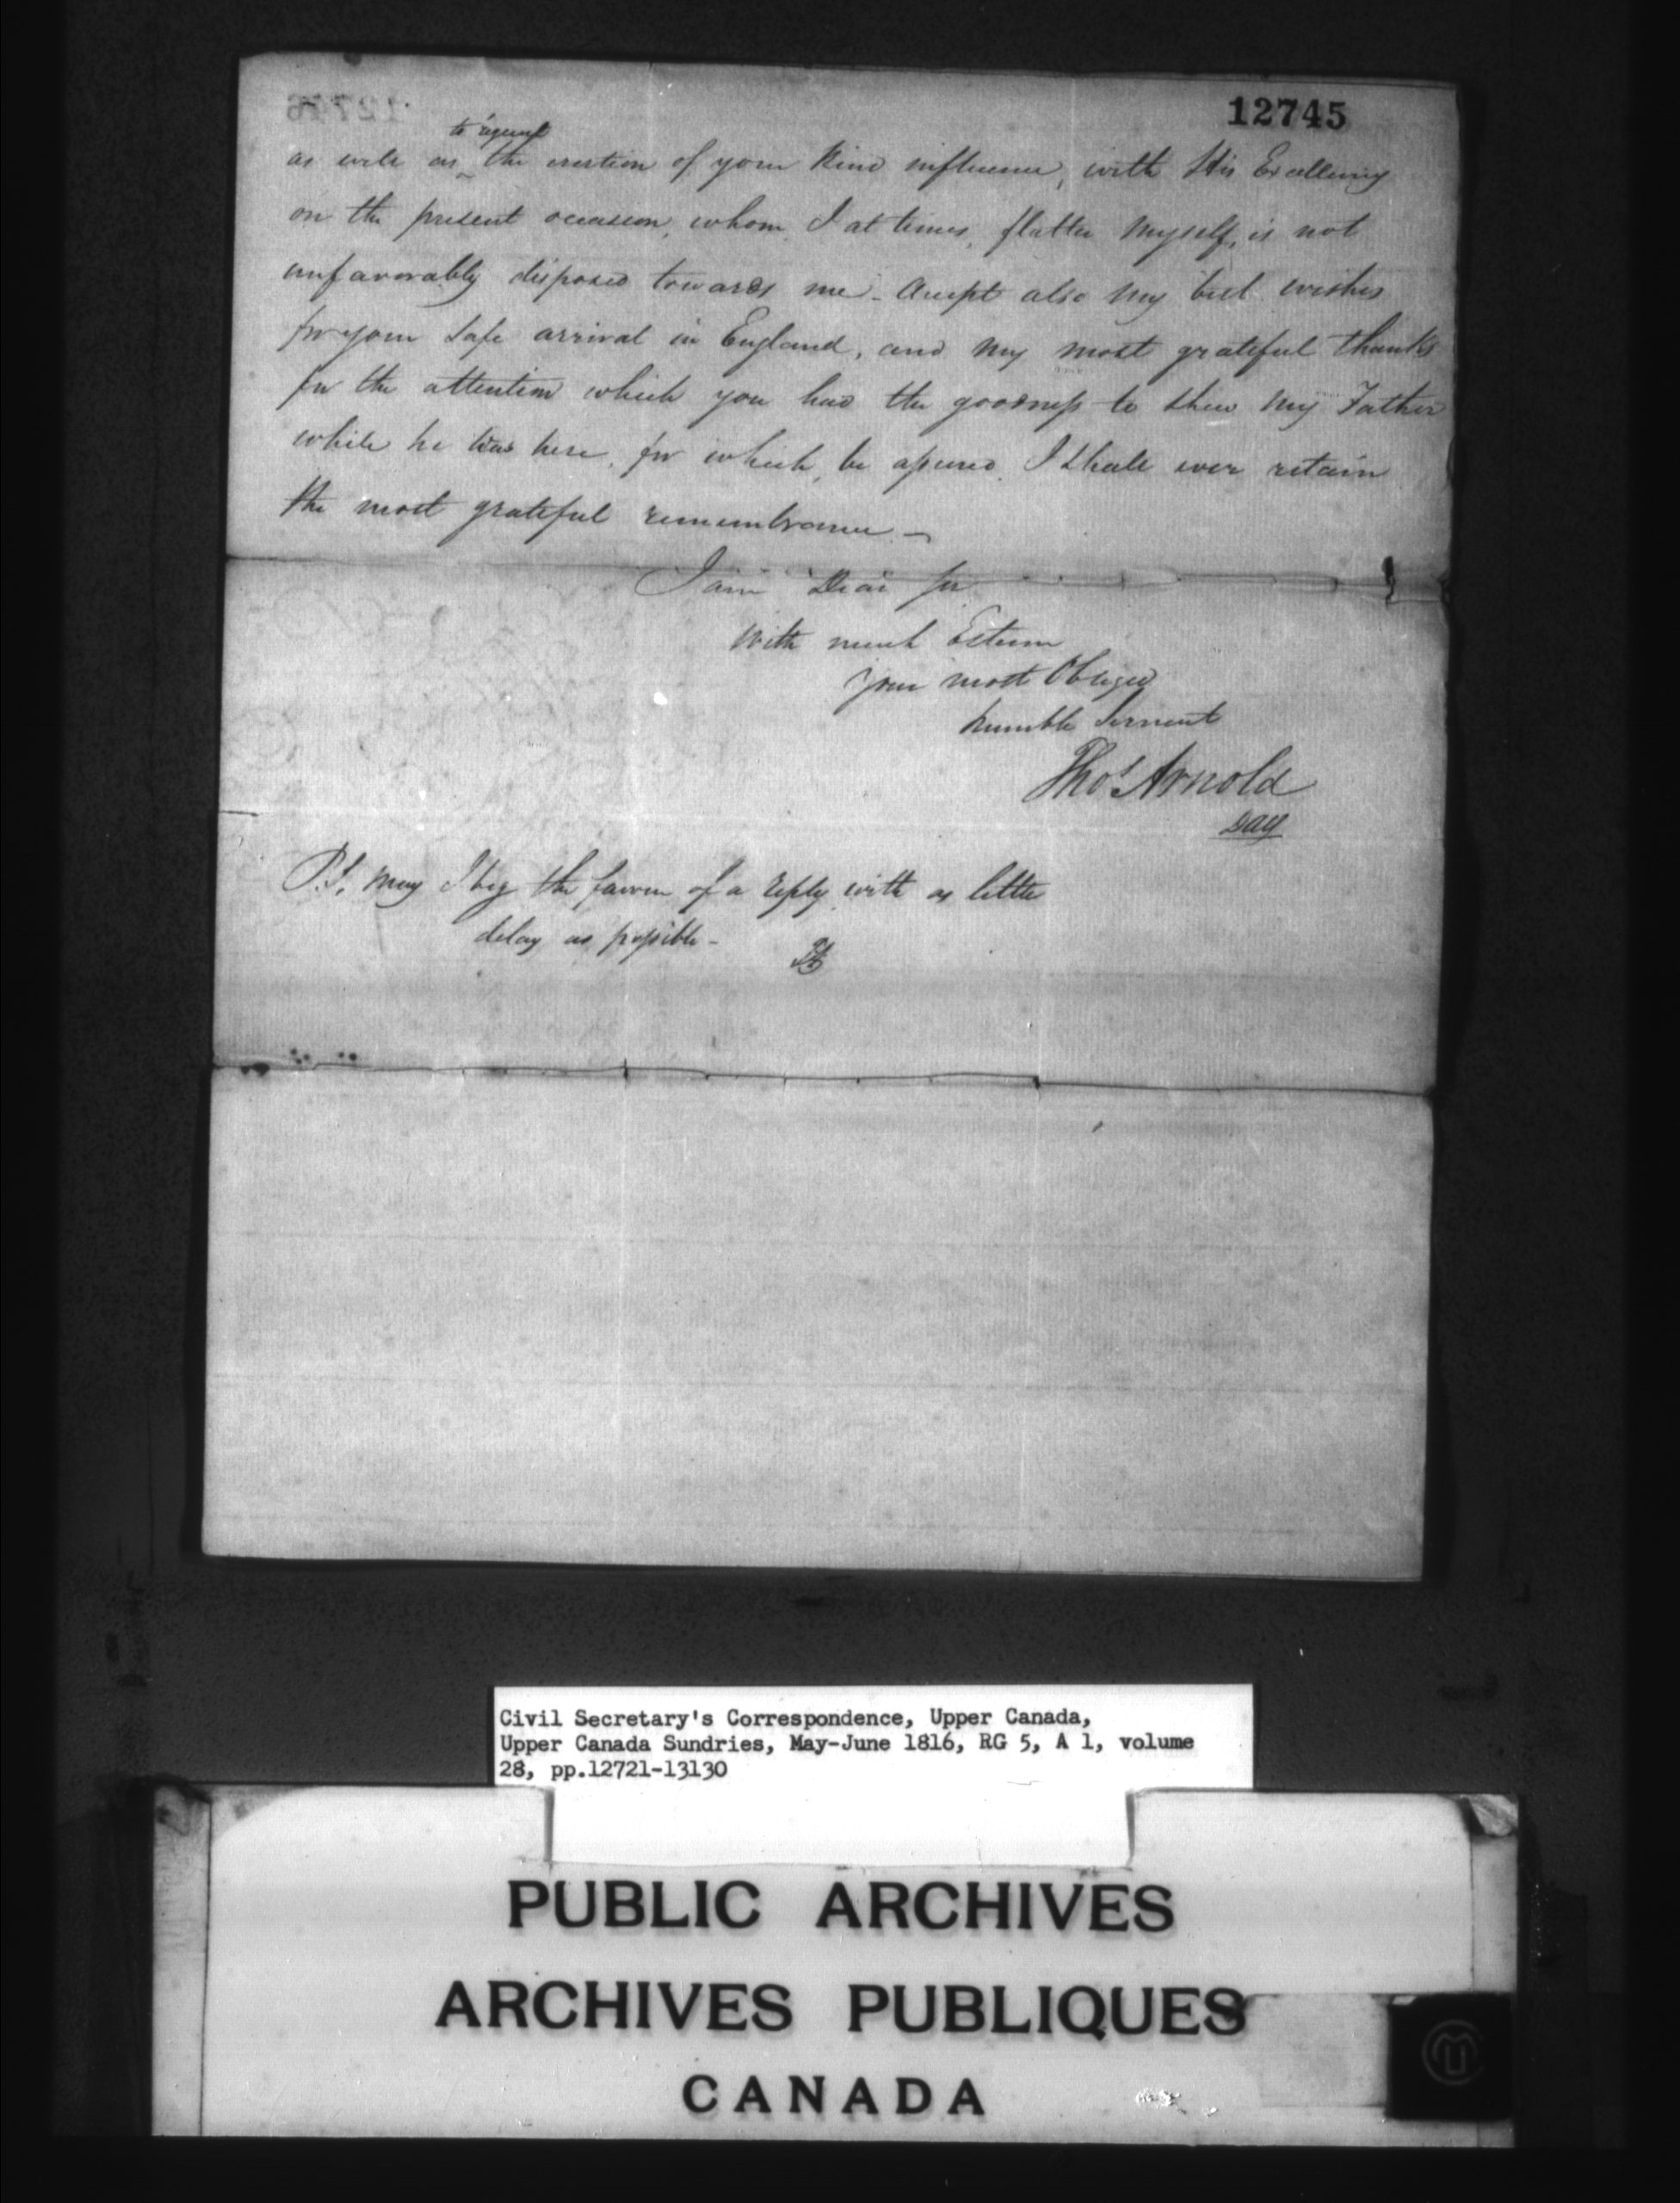 12745
to request
as well as the exertion of your kind influence, with His Excellency
on the present occasion, whom, I at times, flatter myself, is not
unfavorably disposed towards me - Accept also my best wishes
for your safe arrival in England, and my most grateful thanks
for the attention which you had the goodness to shew my Father
while he was here, for which, be assured, I shall ever retain
the most grateful remembrance -
I am Dear Sir
With much Esteem
your most Obliged
humble Servant
Thos Arnold
P.S. May I beg the favour of a reply with as little
delay as possible -
TA
Civil Secretary's Correspondence, Upper Canada,
Upper Canada Sundries, May-June 1816, RG 5, A 1, volume
28, pp.12721-13130
PUBLIC ARCHIVES
ARCHIVES PUBLIQUES
CANADA